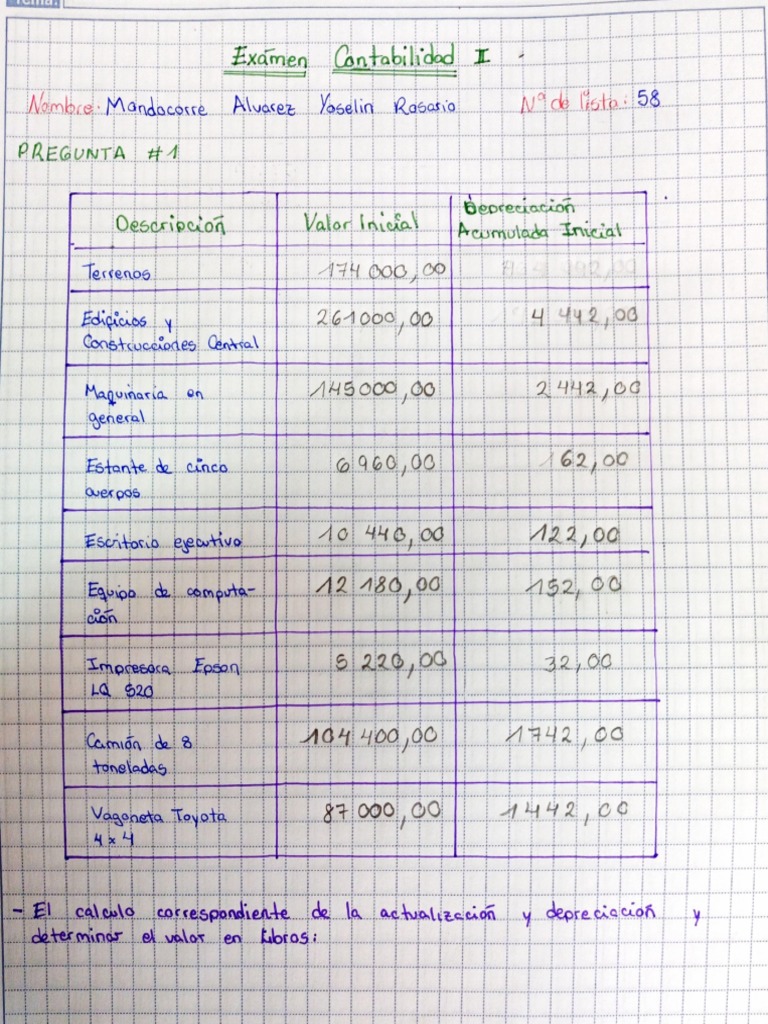 Tema:
Exámen Contabilidad I
Nombre: Mandocorre Alvarez Yoselin Rosario Nº de lista: 58
PREGUNTA #1
Descripción Valor Inicial Depreciación
Acumulada Inicial
Terrenos 174 000,00
Edificios y 261000,00 4 442,00
Construcciones Central
Maquinaria en 145000,00 2 442,00
general
Estante de cinco 6 960,00 162,00
cuerpos
Escritorio ejecutivo 10 440,00 122,00
Equipo de computa- 12 180,00 152,00
ción
Impresora Epson 5 220,00 32,00
LQ 520
Camión de 8 104 400,00 1742,00
toneladas
Vagoneta Toyota 87 000,00 1442,00
4x4
- El calculo correspondiente de la actualización y depreciación y
determinar el valor en Libros: